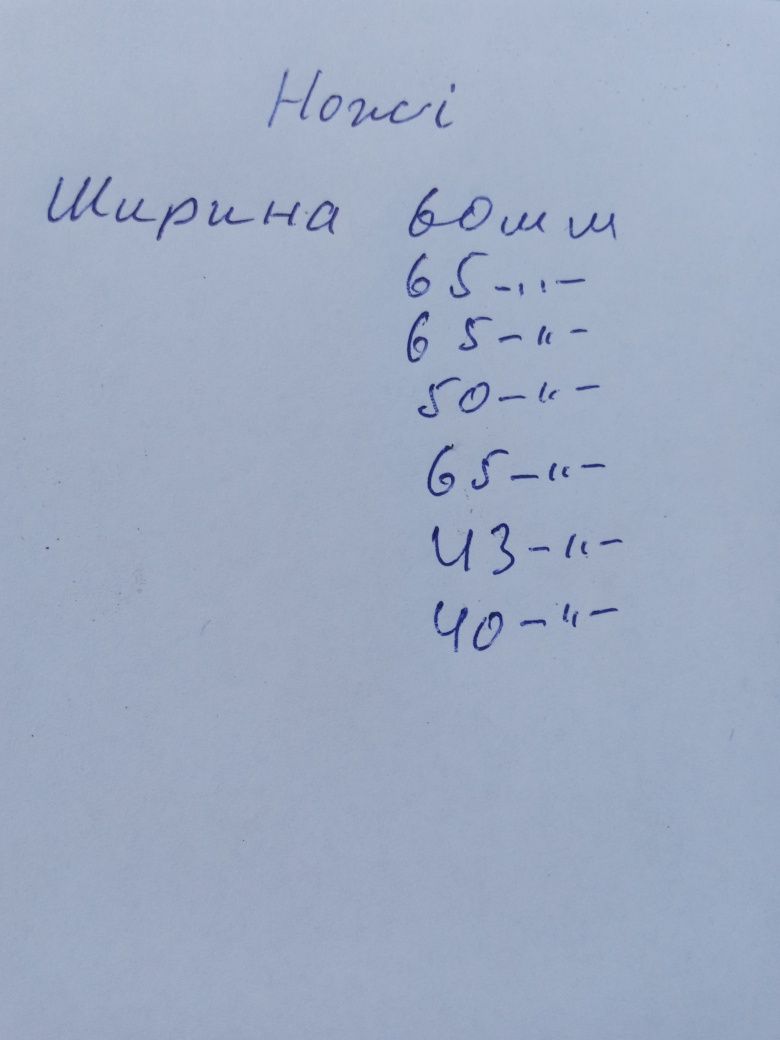 Ножі
Ширина 60мм
65-„-
65-"-
50-"-
65-"-
43-"-
40-"-